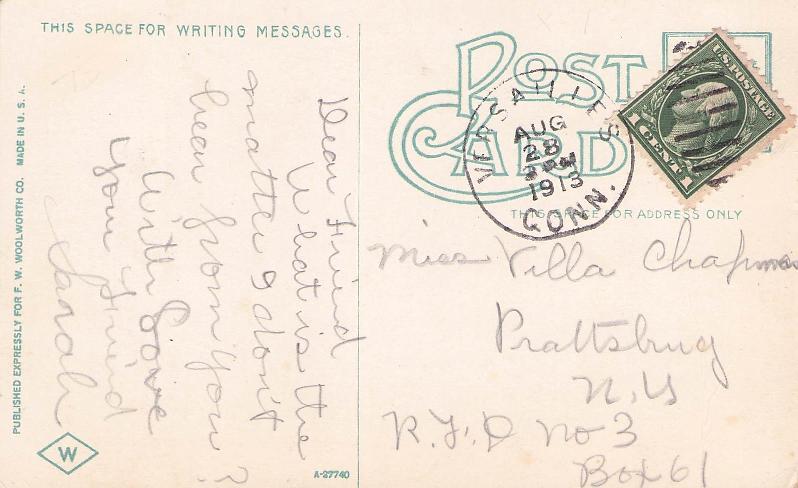 THIS SPACE FOR WRITING MESSAGES.
Dear Friend
What is the
matter I don't
hear from you?
With Love
your Friend
Sarah
PUBLISHED EXPRESSLY FOR F. W. WOOLWORTH CO. MADE IN U. S. A.
W
A-27740
POST
CARD
VERSAILLES
AUG
28
1913
CONN.
U.S. POSTAGE
1 CENT 1
THIS SPACE FOR ADDRESS ONLY
Miss Villa Chapman
Prattsbug
N. Y
R. F. D No 3
Box 61